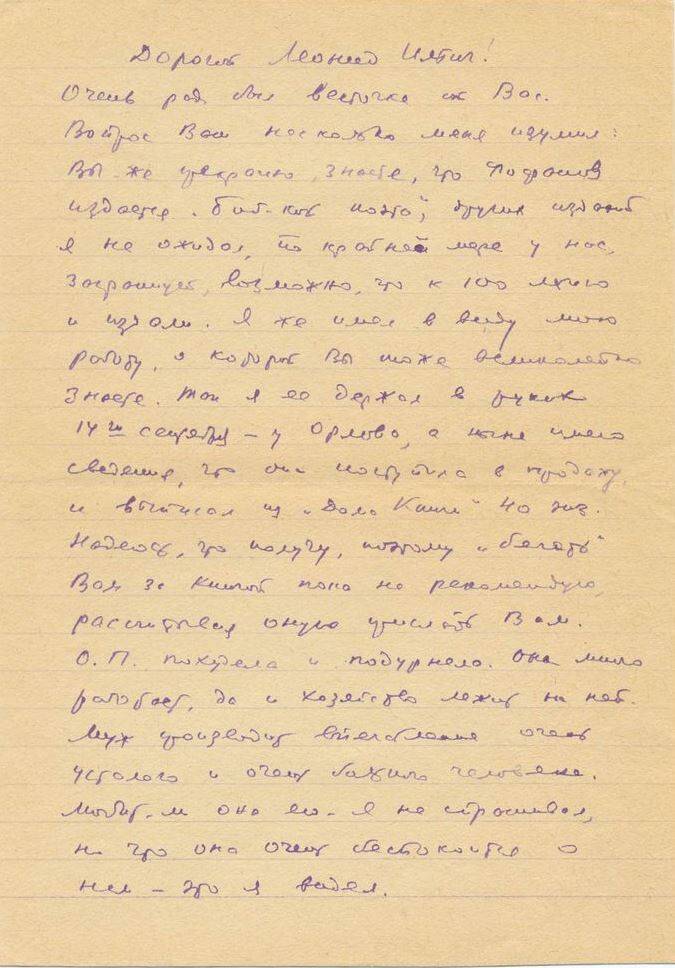 Дорогой Леонид Ильич!
Очень рад был весточке от Вас.
Вопрос Ваш несколько меня изумил:
Вы же прекрасно знаете, что Парфенов
издается "Биб-кой поэта", других изданий
я не ожидал, по крайней мере у нас,
возможно, что к 100 летию
и издали. Я же имел в виду мою
работу, о которой Вы тоже великолепно
знаете. Там я ее держал в руках
14го сентября – у Орлова, а ныне имею
сведения, что она поступила в продажу,
и выписал из "Дома Книги" 40 экз.
Надеюсь, что получу, поэтому "бегать"
Вам за книгой пока не рекомендую,
рассчитывая оную прислать Вам.
О.П. похудела и подурнела. Она много
работает, да и хозяйство лежит на ней.
Муж производит впечатление очень
усталого и очень больного человека.
Любит-ли она его – я не спрашивал,
но что она очень беспокоится о
нем – это я видел.